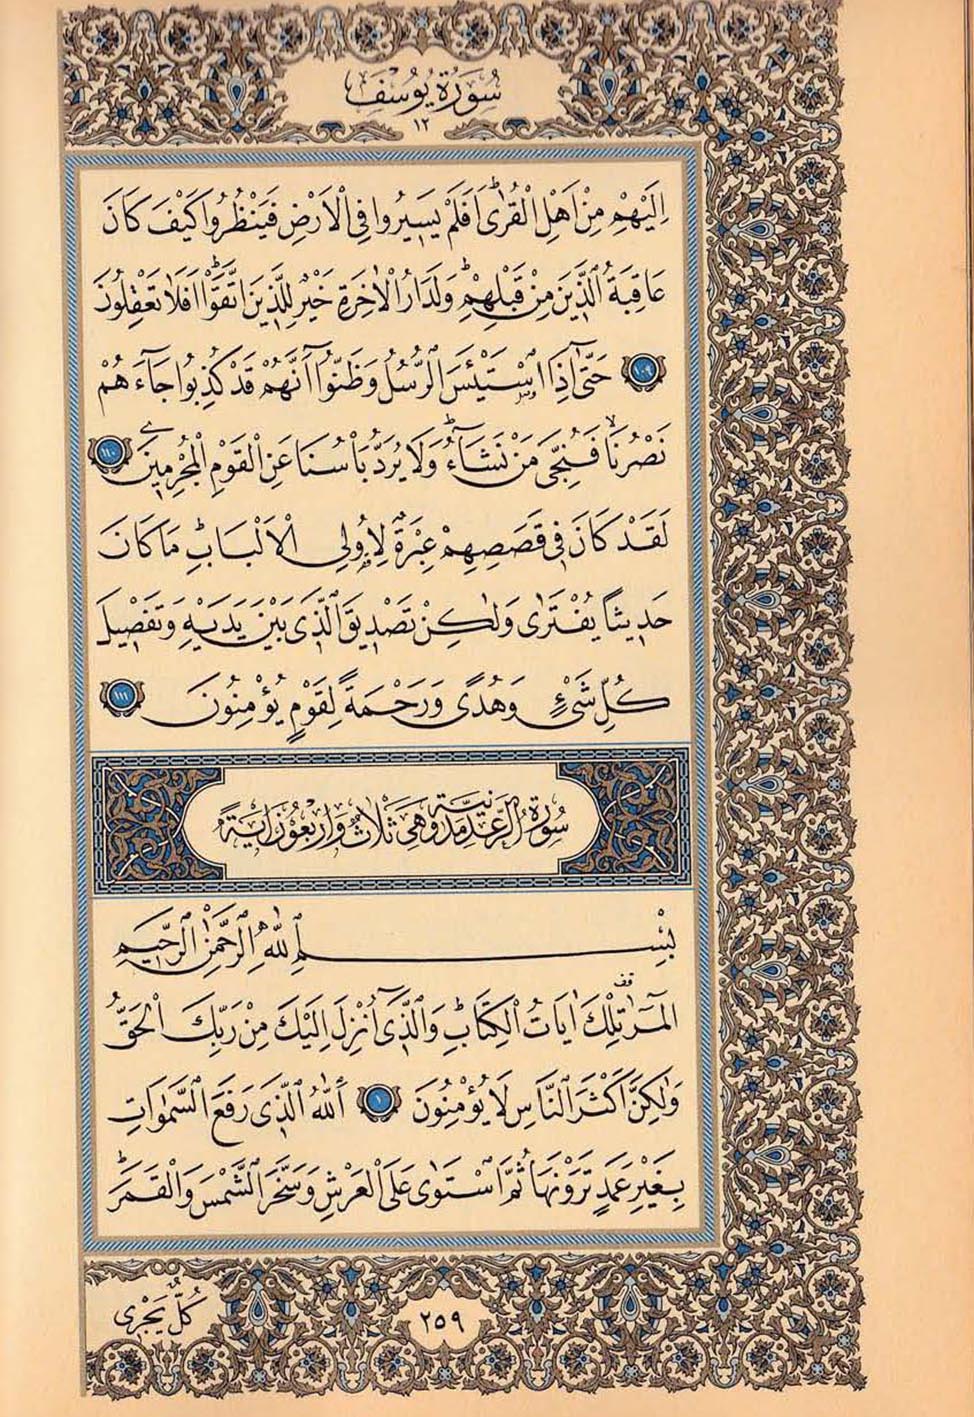 سُورَةُ يُوسُفَ
١٢
اِلَيْهِمْ مِنْ اَهْلِ الْقُرٰىۜ اَفَلَمْ يَسِيرُوا فِي الْاَرْضِ فَيَنْظُرُوا كَيْفَ كَانَ
عَاقِبَةُ الَّذِينَ مِنْ قَبْلِهِمْۜ وَلَدَارُ الْاٰخِرَةِ خَيْرٌ لِلَّذِينَ اتَّقَوْاۜ اَفَلَا تَعْقِلُونَ
١٠٩ حَتّٰٓى اِذَا اسْتَيْـَٔسَ الرُّسُلُ وَظَنُّٓوا اَنَّهُمْ قَدْ كُذِبُوا جَٓاءَهُمْ
نَصْرُنَاۙ فَنُجِّيَ مَنْ نَشَٓاءُۜ وَلَا يُرَدُّ بَأْسُنَا عَنِ الْقَوْمِ الْمُجْرِمِينَ ١١٠
لَقَدْ كَانَ فِي قَصَصِهِمْ عِبْرَةٌ لِاُو۬لِي الْاَلْبَابِۜ مَا كَانَ
حَدِيثًا يُفْتَرٰى وَلٰكِنْ تَصْدِيقَ الَّذِي بَيْنَ يَدَيْهِ وَتَفْصِيلَ
كُلِّ شَيْءٍ وَهُدًى وَرَحْمَةً لِقَوْمٍ يُؤْمِنُونَ ١١١
سُورَةُ الرَّعْدِ مَدَنِيَّةٌ وَهِيَ ثَلَاثٌ وَاَرْبَعُونَ اٰيَةً
بِسْمِ اللّٰهِ الرَّحْمٰنِ الرَّحِيمِ
الٓمٓرٰ۠ تِلْكَ اٰيَاتُ الْكِتَابِۜ وَالَّذِٓي اُنْزِلَ اِلَيْكَ مِنْ رَبِّكَ الْحَقُّ
وَلٰكِنَّ اَكْثَرَ النَّاسِ لَا يُؤْمِنُونَ ١ اَللّٰهُ الَّذِي رَفَعَ السَّمٰوَاتِ
بِغَيْرِ عَمَدٍ تَرَوْنَهَا ثُمَّ اسْتَوٰى عَلَى الْعَرْشِ وَسَخَّرَ الشَّمْسَ وَالْقَمَرَۜ
كُلٌّ يَجْرِي
٢٥٩